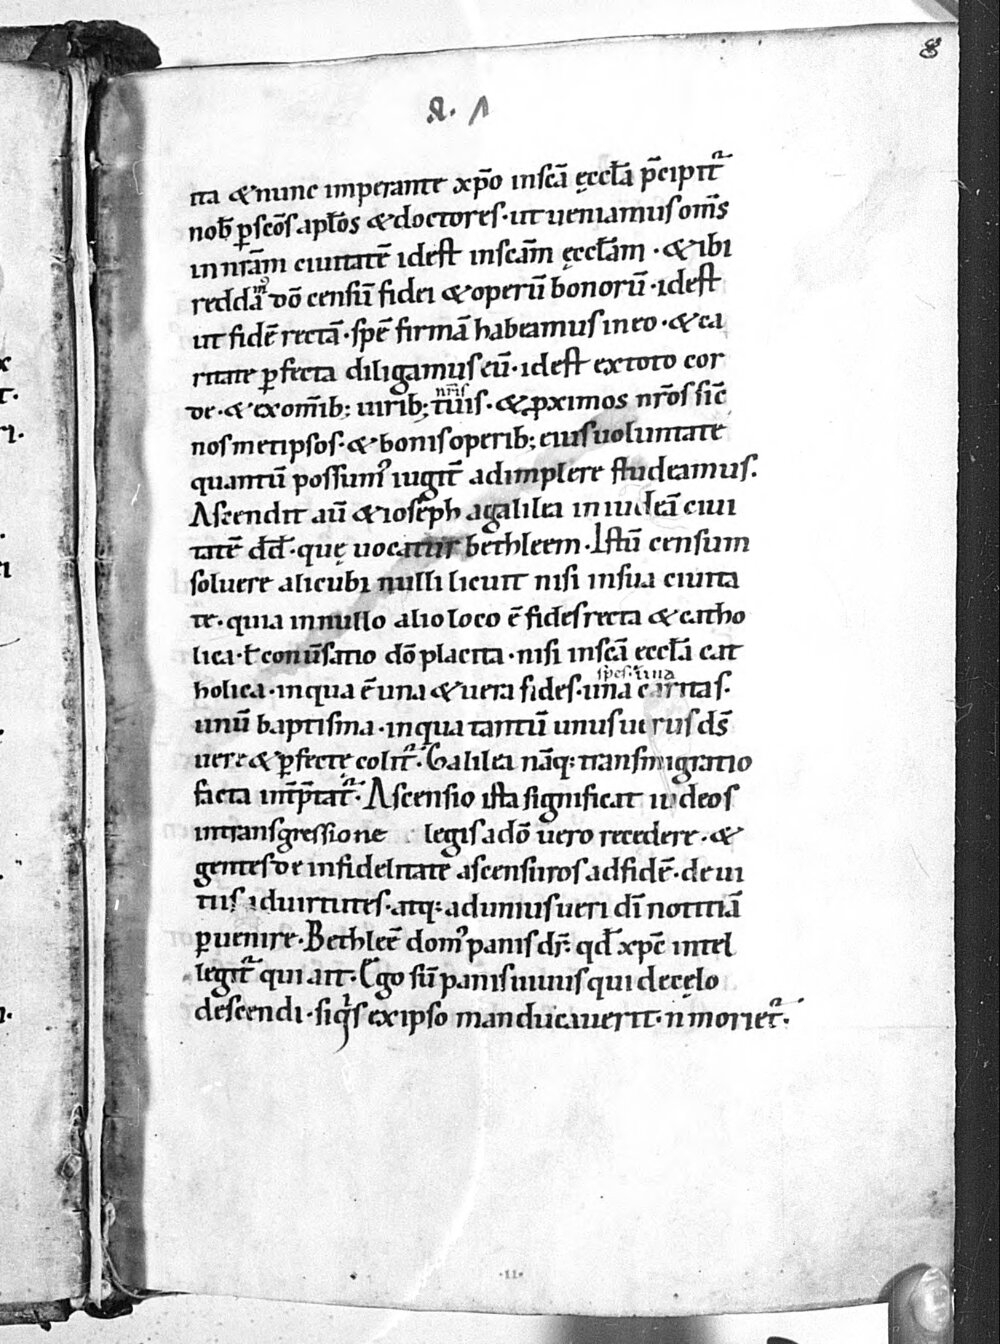 8
A. Λ
ita & nunc imperante xp̄o in scā ęccl̄a p̄cipit᷑
nob̄ ꝑ scōs apl̄os & doctores · ut ueniamus om̄s
in nrā̄m ciuitatē idest in scā̄m ęccl̄am · & ibi
reddam᷒ dō censū fidei & operū bonorū · idest
ut fidē rectā · spē firmā habeamus in eo · & ca
ritate ꝑfecta diligamus eū · idest ex toto cor
de · & ex om̄ib; uirib; tuis · & ꝓximos nr̄os sic̄
nr̄is
nosmetipsos · & bonis operib; eius uoluntatē
quantū possum᷒ iugit̄ adimplere studeamus.
Ascendit aū & ioseph a galilea in iudeā ciui
tatē dd̄ · quę uocatur bethleem · Istū censum
soluere alicubi nulli licuit nisi in sua ciuita
te · quia in nullo alio loco ē fides recta & catho
lica · ł conūsatio dō placita · nisi in scā ęccl̄a cat
holica · in qua ē una & uera fides · una caritas ·
spes · ł una
unū baptisma · in qua tantū unus uerus ds̄
uere & ꝑfectę colit᷑ · Galilea nāq: transmigratio
facta int̄p̄tat᷑ · Ascensio ista significat iudeos
in transgressione legis a dō uero recedere · &
gentes de infidelitate ascensuros ad fidē · de ui
tiis ad uirtutes · atq: ad unius ueri dī notitiā
ꝑuenire · Bethleē dom᷒ panis dr̄ · qd̄ xpc̄ intel
legit᷑ qui ait · Ego sū panis uiuus qui de cęlo
descendi · siq̇s ex ipso manducauerit · n̄ moriet᷑ ·
·11·